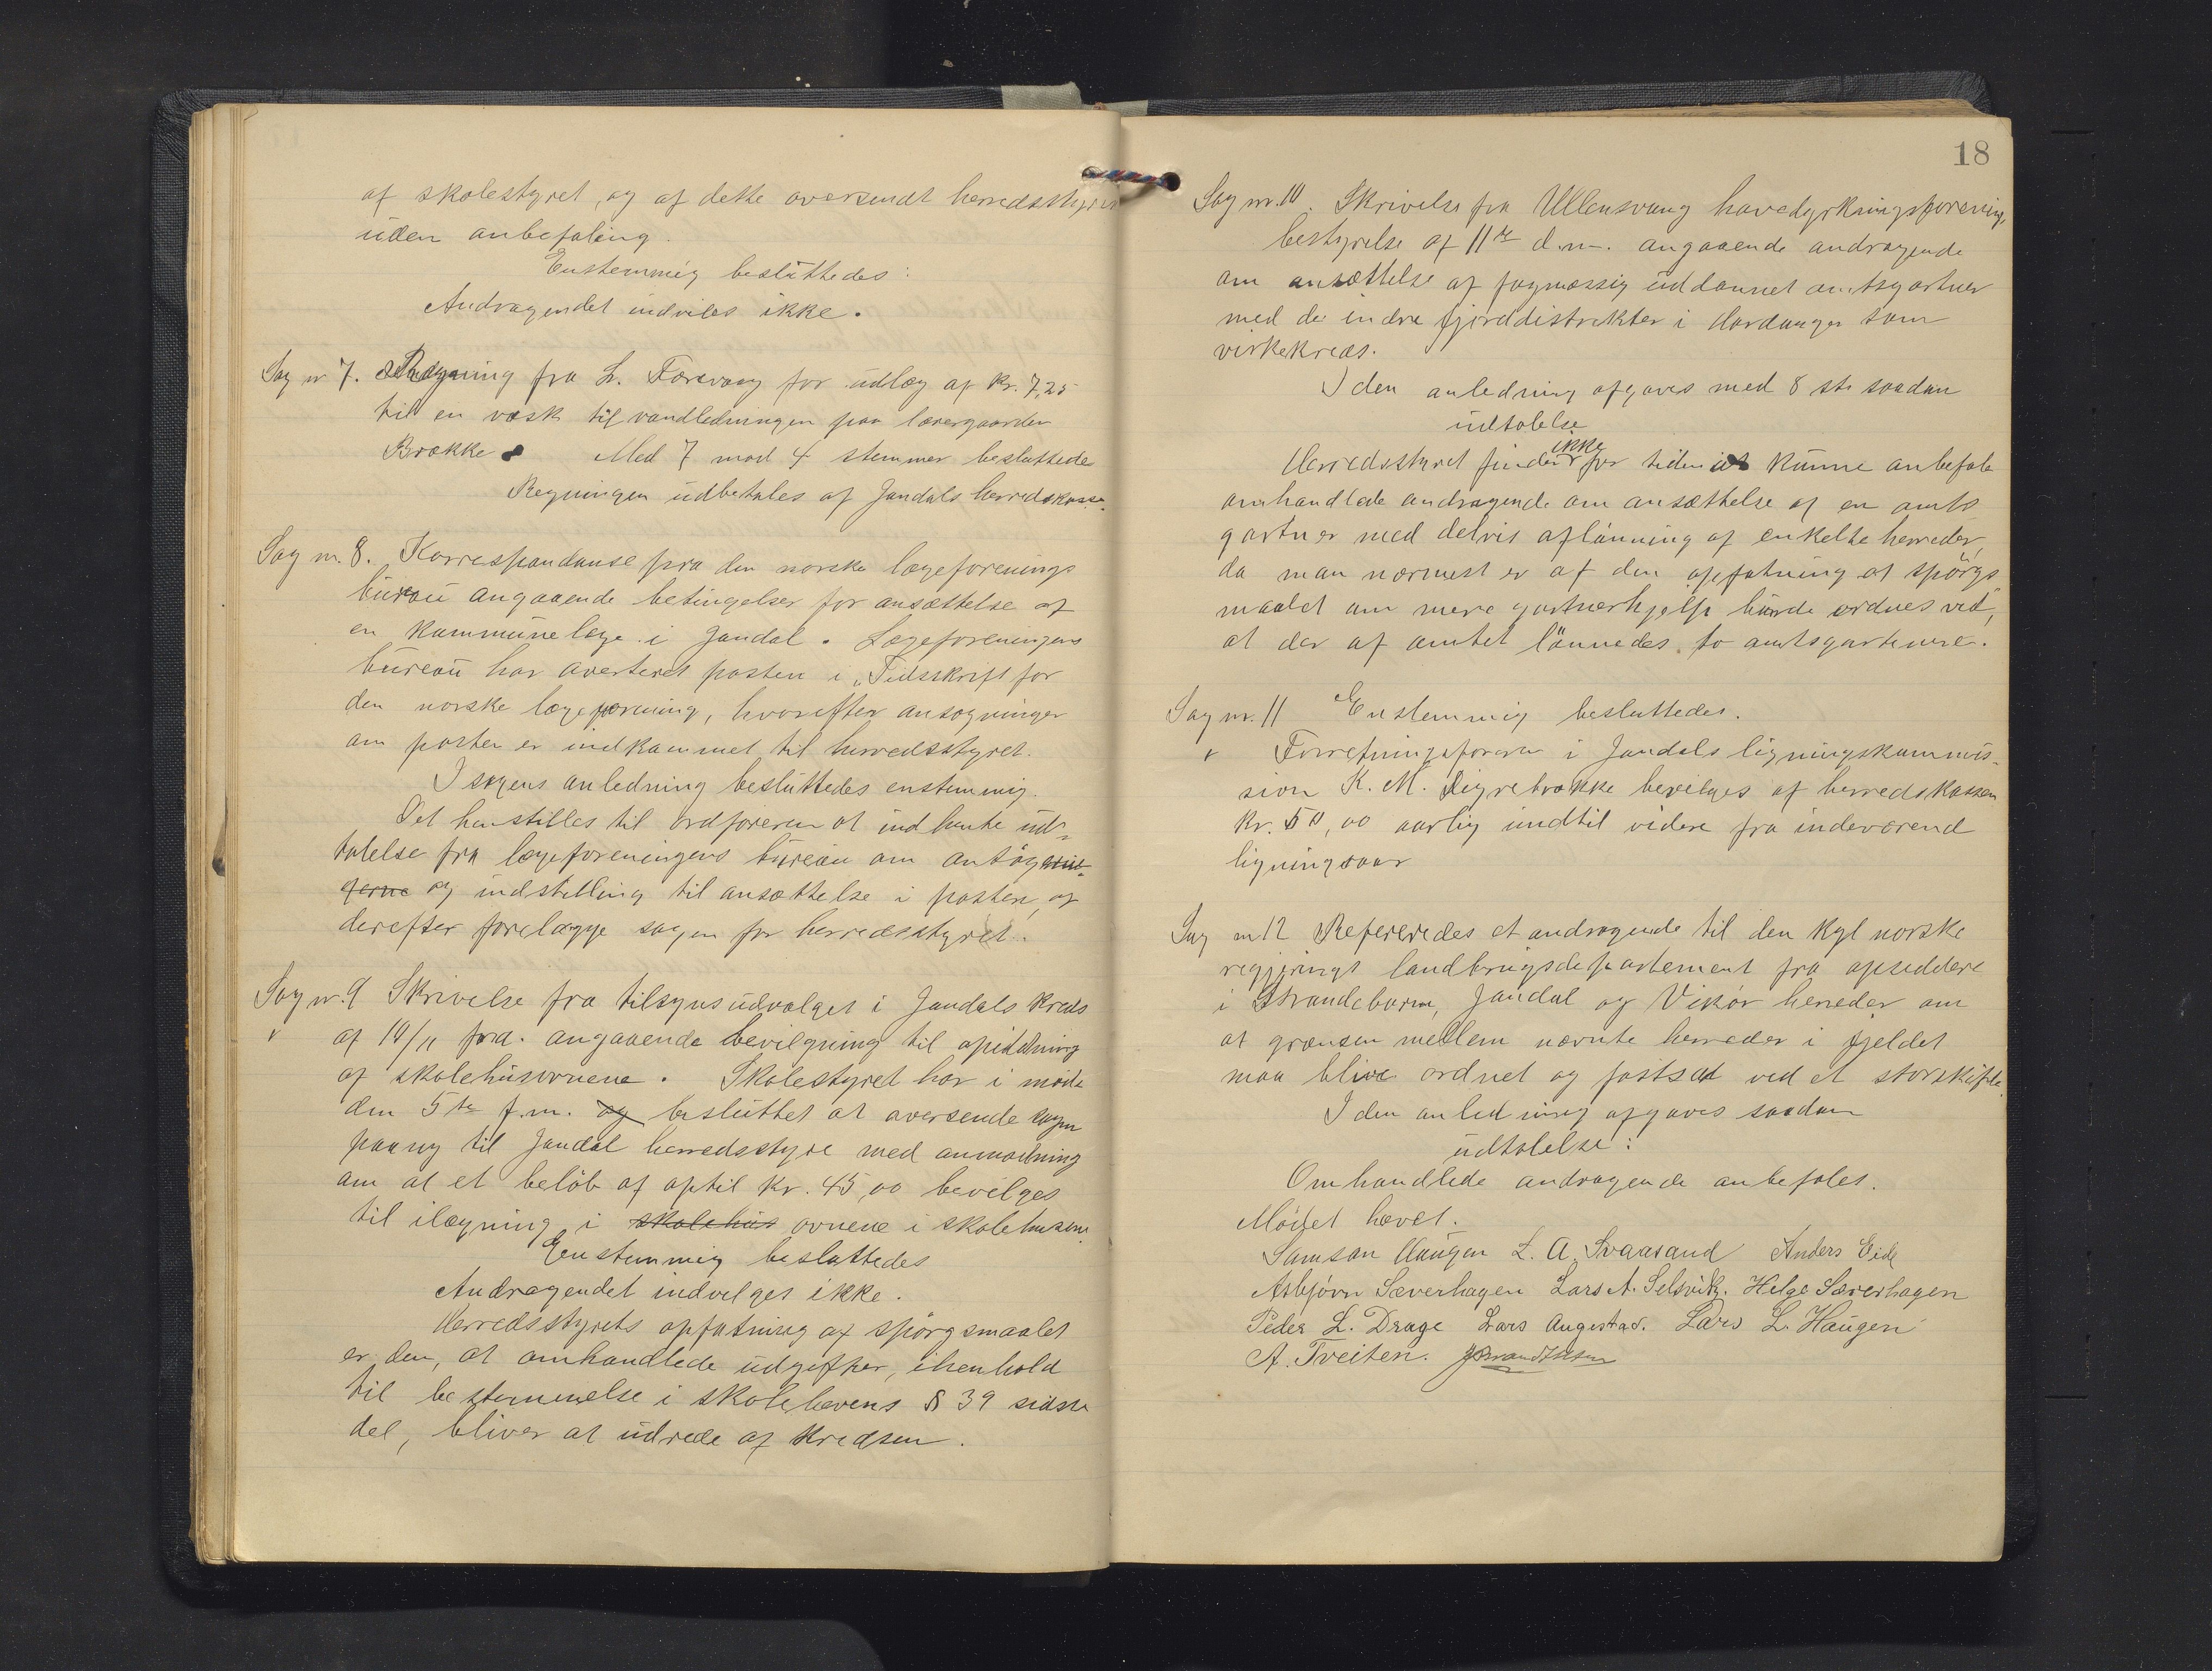 af skolestyret, og af dette oversendt herredsstyret
uden anbefaling.
Enstemmig besluttedes:
Andragendet indvilges ikke.
Sag nr 7. Regning fra L. Færevaag for udlæg af kr. 7,25
til en vask til vandledningen paa lærergaarden
Brække. Med 7 mod 4 stemmer besluttede
Regningen udbetales af Jondals herredskasse.
Sag nr. 8. Korrespondanse fra den norske lægeforenings
bureau angaaende betingelser for ansættelse af
en kommunelæge i Jondal. Lægeforeningens
bureau har averteret posten i "Tidsskrift for
den norske lægeforening, hvorefter ansøgninger
om posten er indkommet til herredsstyret.
I sagens anledning besluttedes enstemmig.
Det henstilles til ordføreren at indhente ud-
talelse fra lægeforeningens bureau om ansøgnin-
gerne og indstilling til ansættelse i posten, og
derefter forelægge sagen for herredsstyret.
Sag nr. 9 Skrivelse fra tilsynsudvalget i Jondals kreds
af 14/11 f.a. angaaende bevilgning til opildning
af skolehusovnene. Skolestyret har i møde
den 5te f.m. og besluttet at oversende sagen
paany til Jondal herredsstyre med anmodning
om at et beløb af optil kr. 45,00 bevilges
til ilægning i skolehus ovnene i skolehusene.
Enstemmig besluttedes
Andragendet indvilges ikke.
Herredsstyrets opfatning af spörgsmaalet
er den, at omhandlede udgifter, ihenhold
til bestemmelse i skolelovens § 39 sidste
del, bliver at udrede af kredsen.
18
Sag nr. 10. Skrivelse fra Ullensvang havedyrkningsforenings
bestyrelse af 11te d.m. angaaende andragende
om ansættelse af fagmæssig uddannet amtsgartner
med de indre fjorddistrikter i Hardanger som
virkekreds.
I den anledning afgaves med 8 st. saadan
udtalelse
ikke
Herredsstyret finder for tiden at kunne anbefale
omhandlede andragende om ansættelse af en amts
gartner med delvis aflönning af enkelte herreder,
da man nærmest er af den opfatning at spörgs
maalet om mere gartnerhjelp burde ordnes ved,
at der af amtet lönnedes to amtsgartnere.
Sag nr. 11 Enstemmig besluttedes.
Forretningsføreren i Jondals ligningskommis-
sion K. M. Digrebrække bevilges af herredskassen
kr. 50,00 aarlig indtil videre fra indeværend
ligningsaar
Sag nr 12 Refereredes et andragende til den kgl norske
regjerings landbrugsdepartement fra opsiddere
i Strandebarm, Jondal og Vikör herreder om
at grænsen mellem nævnte herreder i fjeldet
maa blive ordnet og fastsat ved et storskifte.
I den anledning afgaves saadan
udtalelse:
Omhandlede andragende anbefales.
Mödet hævet.
Samson Haugen L. A. Svaasand Anders Eide
Asbjørn Sæverhagen Lars A. Selsvik. Helge Sæverhagen
Peder L. Drage Lars Augestad. Lars L. Haugen
A. Tveiten.